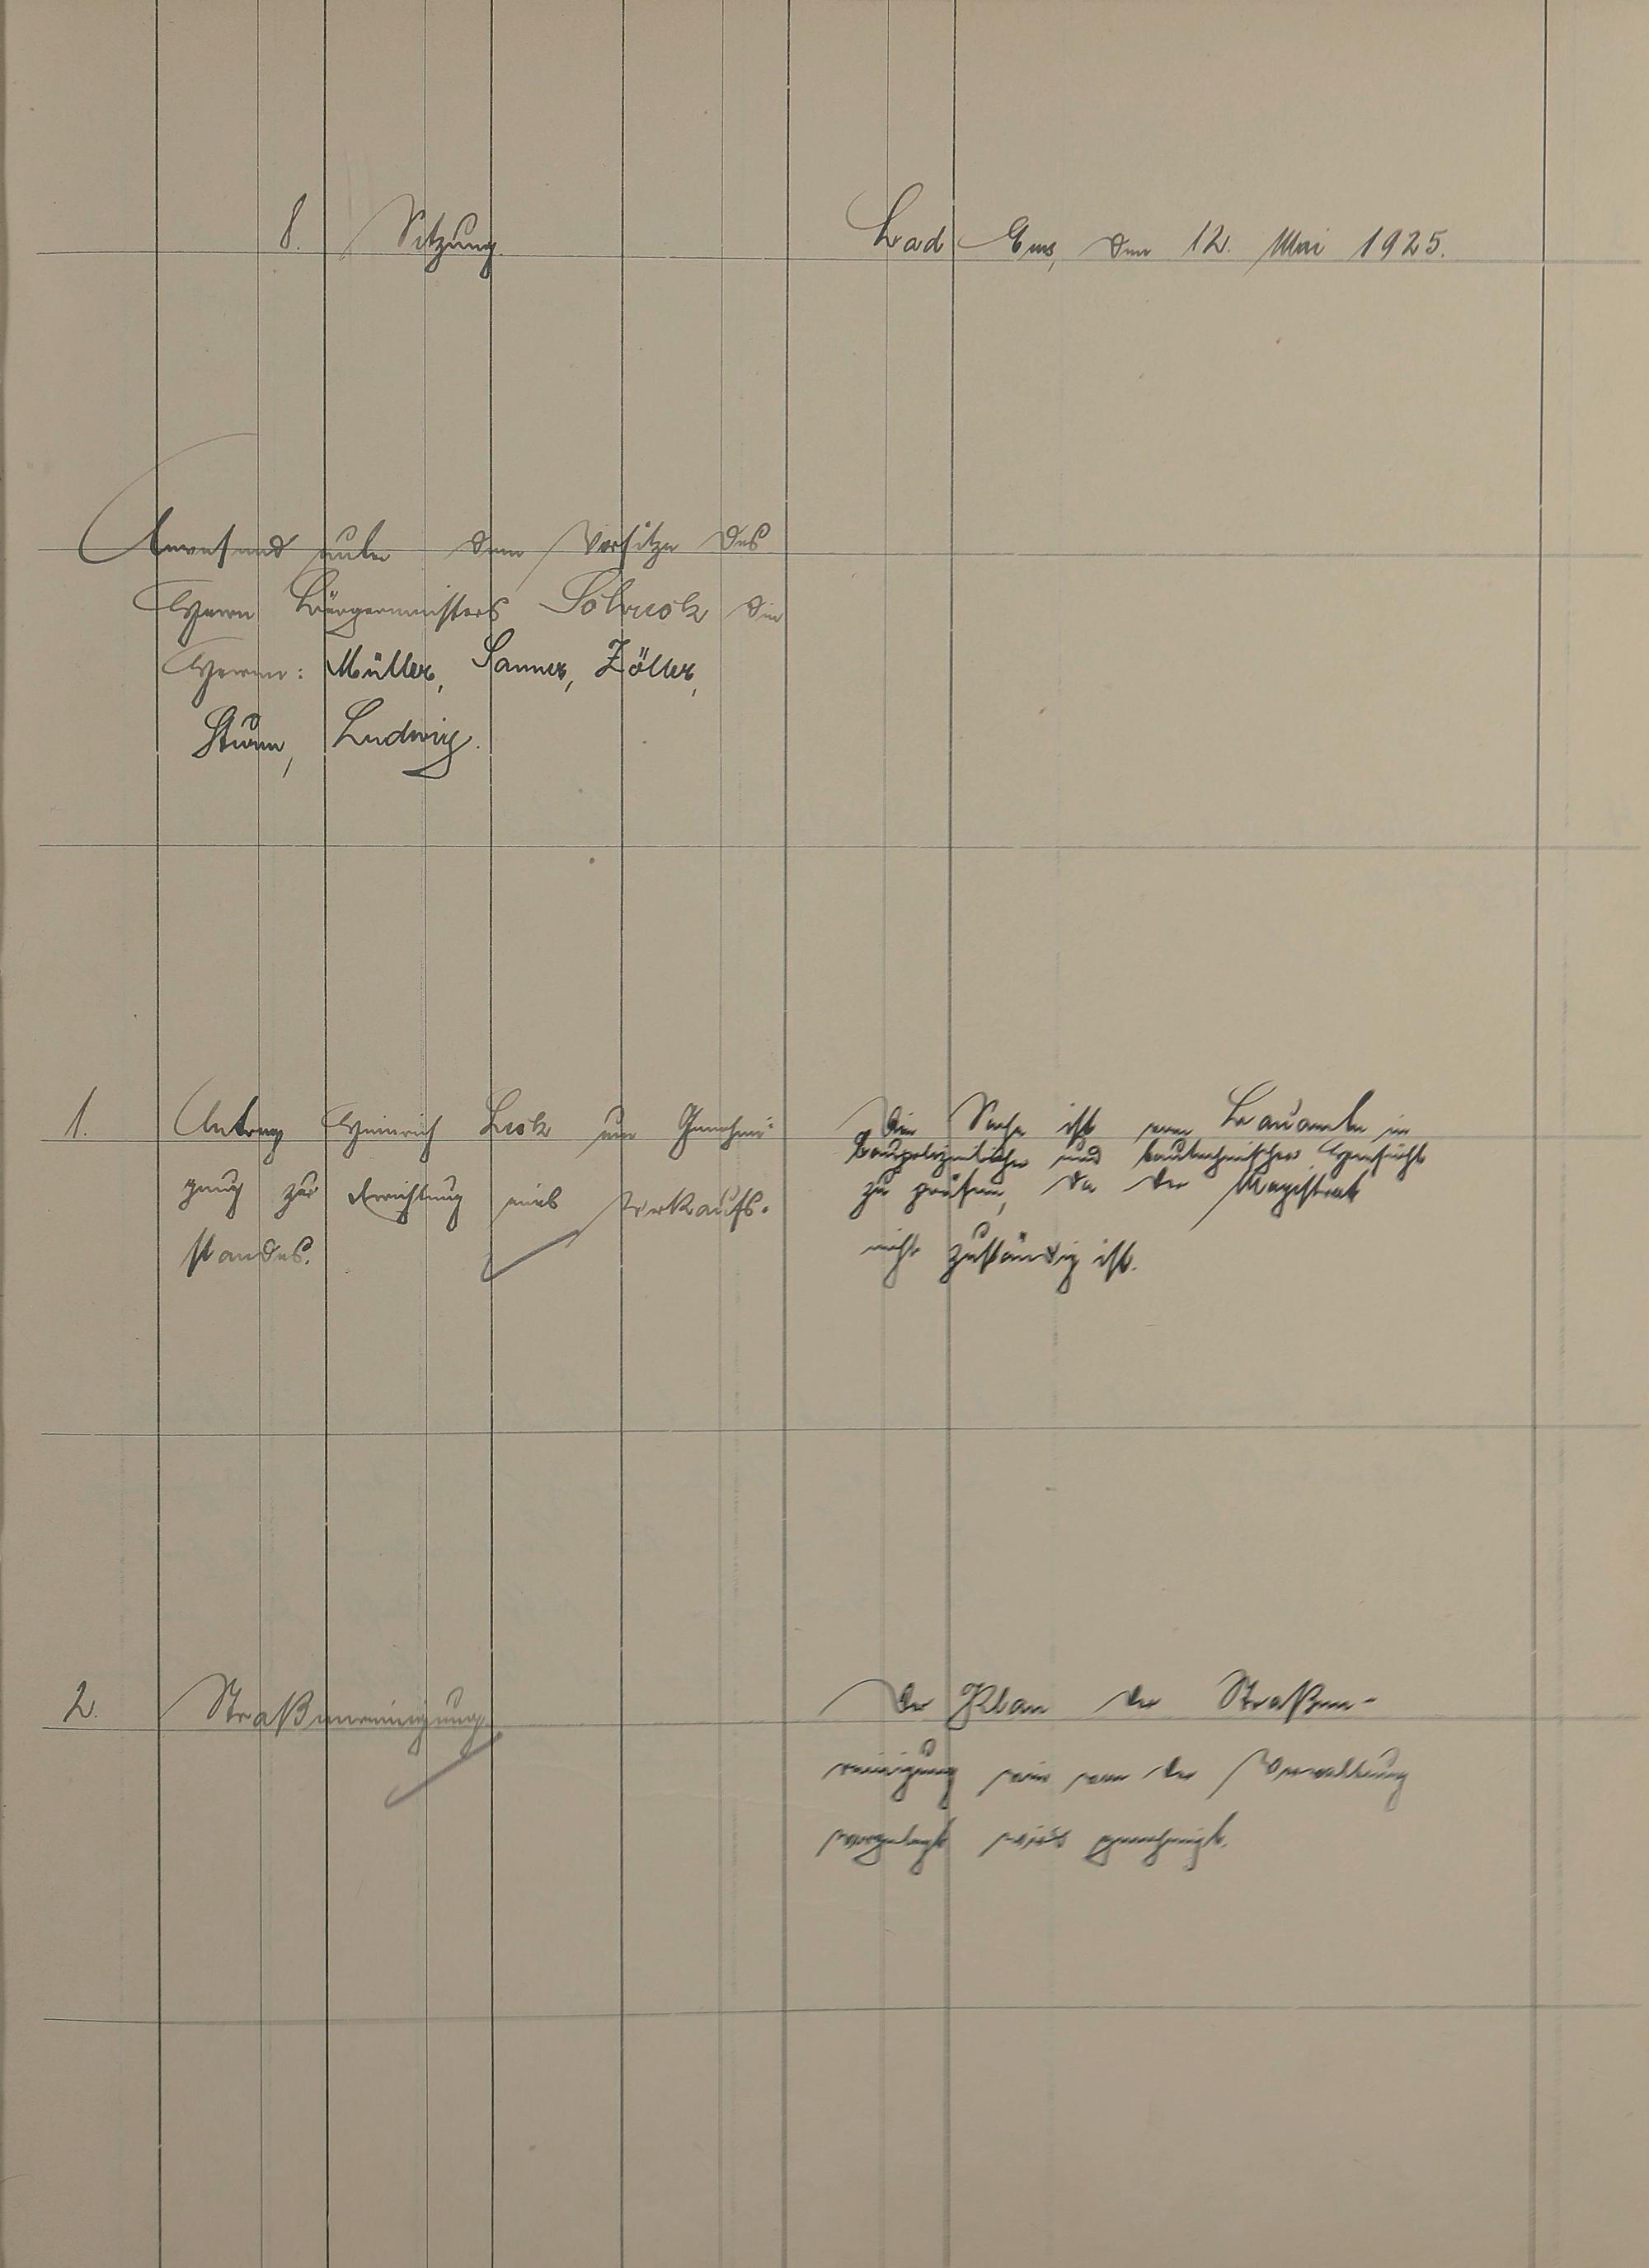 8. Sitzung. Bad Ems, den 12. Mai 1925.
Anwesend unter dem Vorsitze des
Herrn Bürgermeisters die
Herren: Müller, Sanner, Zöller,
Sturm, Ludwig.
1. Antrag Heinrich um Genehmi-
gung zur Errichtung eines Verkaufs-
standes.
Die Sache ist vom Bauamte in
baupolizeilicher und bautechnischer Hinsicht
zu prüfen, da der Magistrat
nicht zuständig ist.
2. Straßenreinigung.
Der Plan der Straßen-
reinigung wie von der Verwaltung
vorgelegt wird genehmigt.